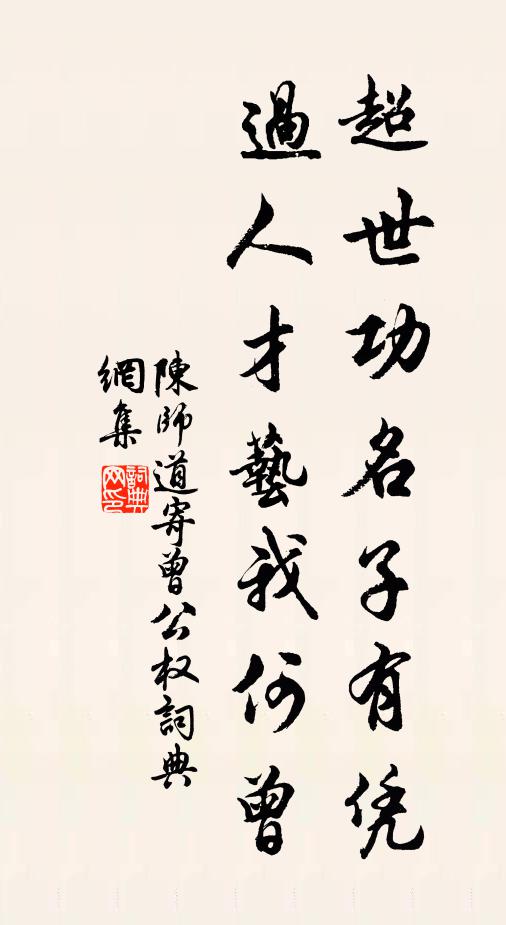 超世功名子有凭
過人才藝我何曾
陳師道寄曾公权詞典
網集
詞典网印